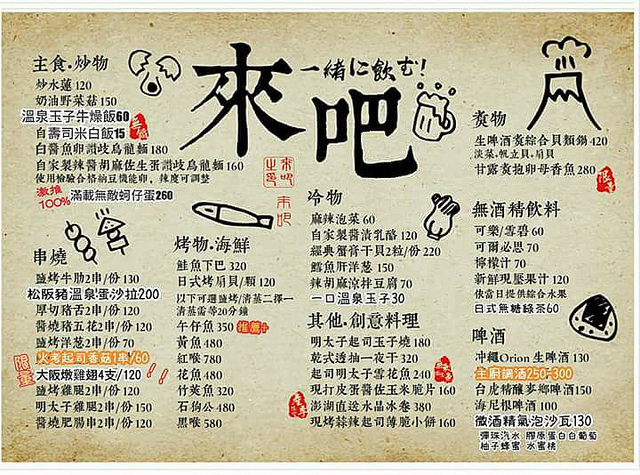 來吧
一緒に飲む!
主食.炒物
炒水蓮 120
奶油野菜菇 150
溫泉玉子牛燥飯60
自壽司米白飯15
白醬魚卵讚岐烏龍麵 180
自家製辣醬胡麻佐生蛋讚岐烏龍麵 160
使用檢驗合格納豆機能卵，辣度可調整
激推
100%
滿載無敵蚵仔蛋260
串燒
鹽烤牛肋2串/份 130
松阪豬溫泉蛋沙拉200
厚切豬舌2串/份 120
醬燒豬五花2串/份 120
鹽烤洋蔥2串/份 70
火考起司香菇1串/60
限量
大阪燉雞翅4支/120
鹽烤雞腿2串/份 120
明太子雞腿2串/份 150
醬燒肥腸串2串/份 120
烤物.海鮮
鮭魚下巴 320
日式烤扇貝/顆 120
以下可選鹽烤/清蒸二擇一
清蒸需等20分鐘
午仔魚 350
推薦
黃魚 480
紅喉 780
花魚 480
竹筴魚 320
石狗公 480
黑喉 580
來吧
冷物
麻辣泡菜 60
自家製醬漬乳酪 120
經典蟹膏干貝2粒/份 220
鱈魚肝洋蔥 150
辣胡麻涼拌豆腐 70
一口溫泉玉子30
其他.創意料理
明太子起司玉子燒 180
乾式透抽一夜干 320
起司明太子雪花魚 240
現打皮蛋醬佐玉米脆片 160
澎湖直送水晶冰卷 380
現烤蒜辣起司薄脆小餅 160
煮物
生啤酒煮綜合貝類鍋 420
淡菜.帆立貝.扇貝
甘露煮抱卵母香魚 280
無酒精飲料
可樂/雪碧 60
可爾必思 70
檸檬汁 70
新鮮現壓果汁 120
依當日提供綜合水果
日式無糖綠茶60
啤酒
沖繩Orion 生啤酒 130
主廚調酒250-300
台虎精釀麥鄉啤酒150
海尼根啤酒 100
微酒精氣泡沙瓦130
彈珠汽水 膠原蛋白白葡萄
柚子蜂蜜 水蜜桃